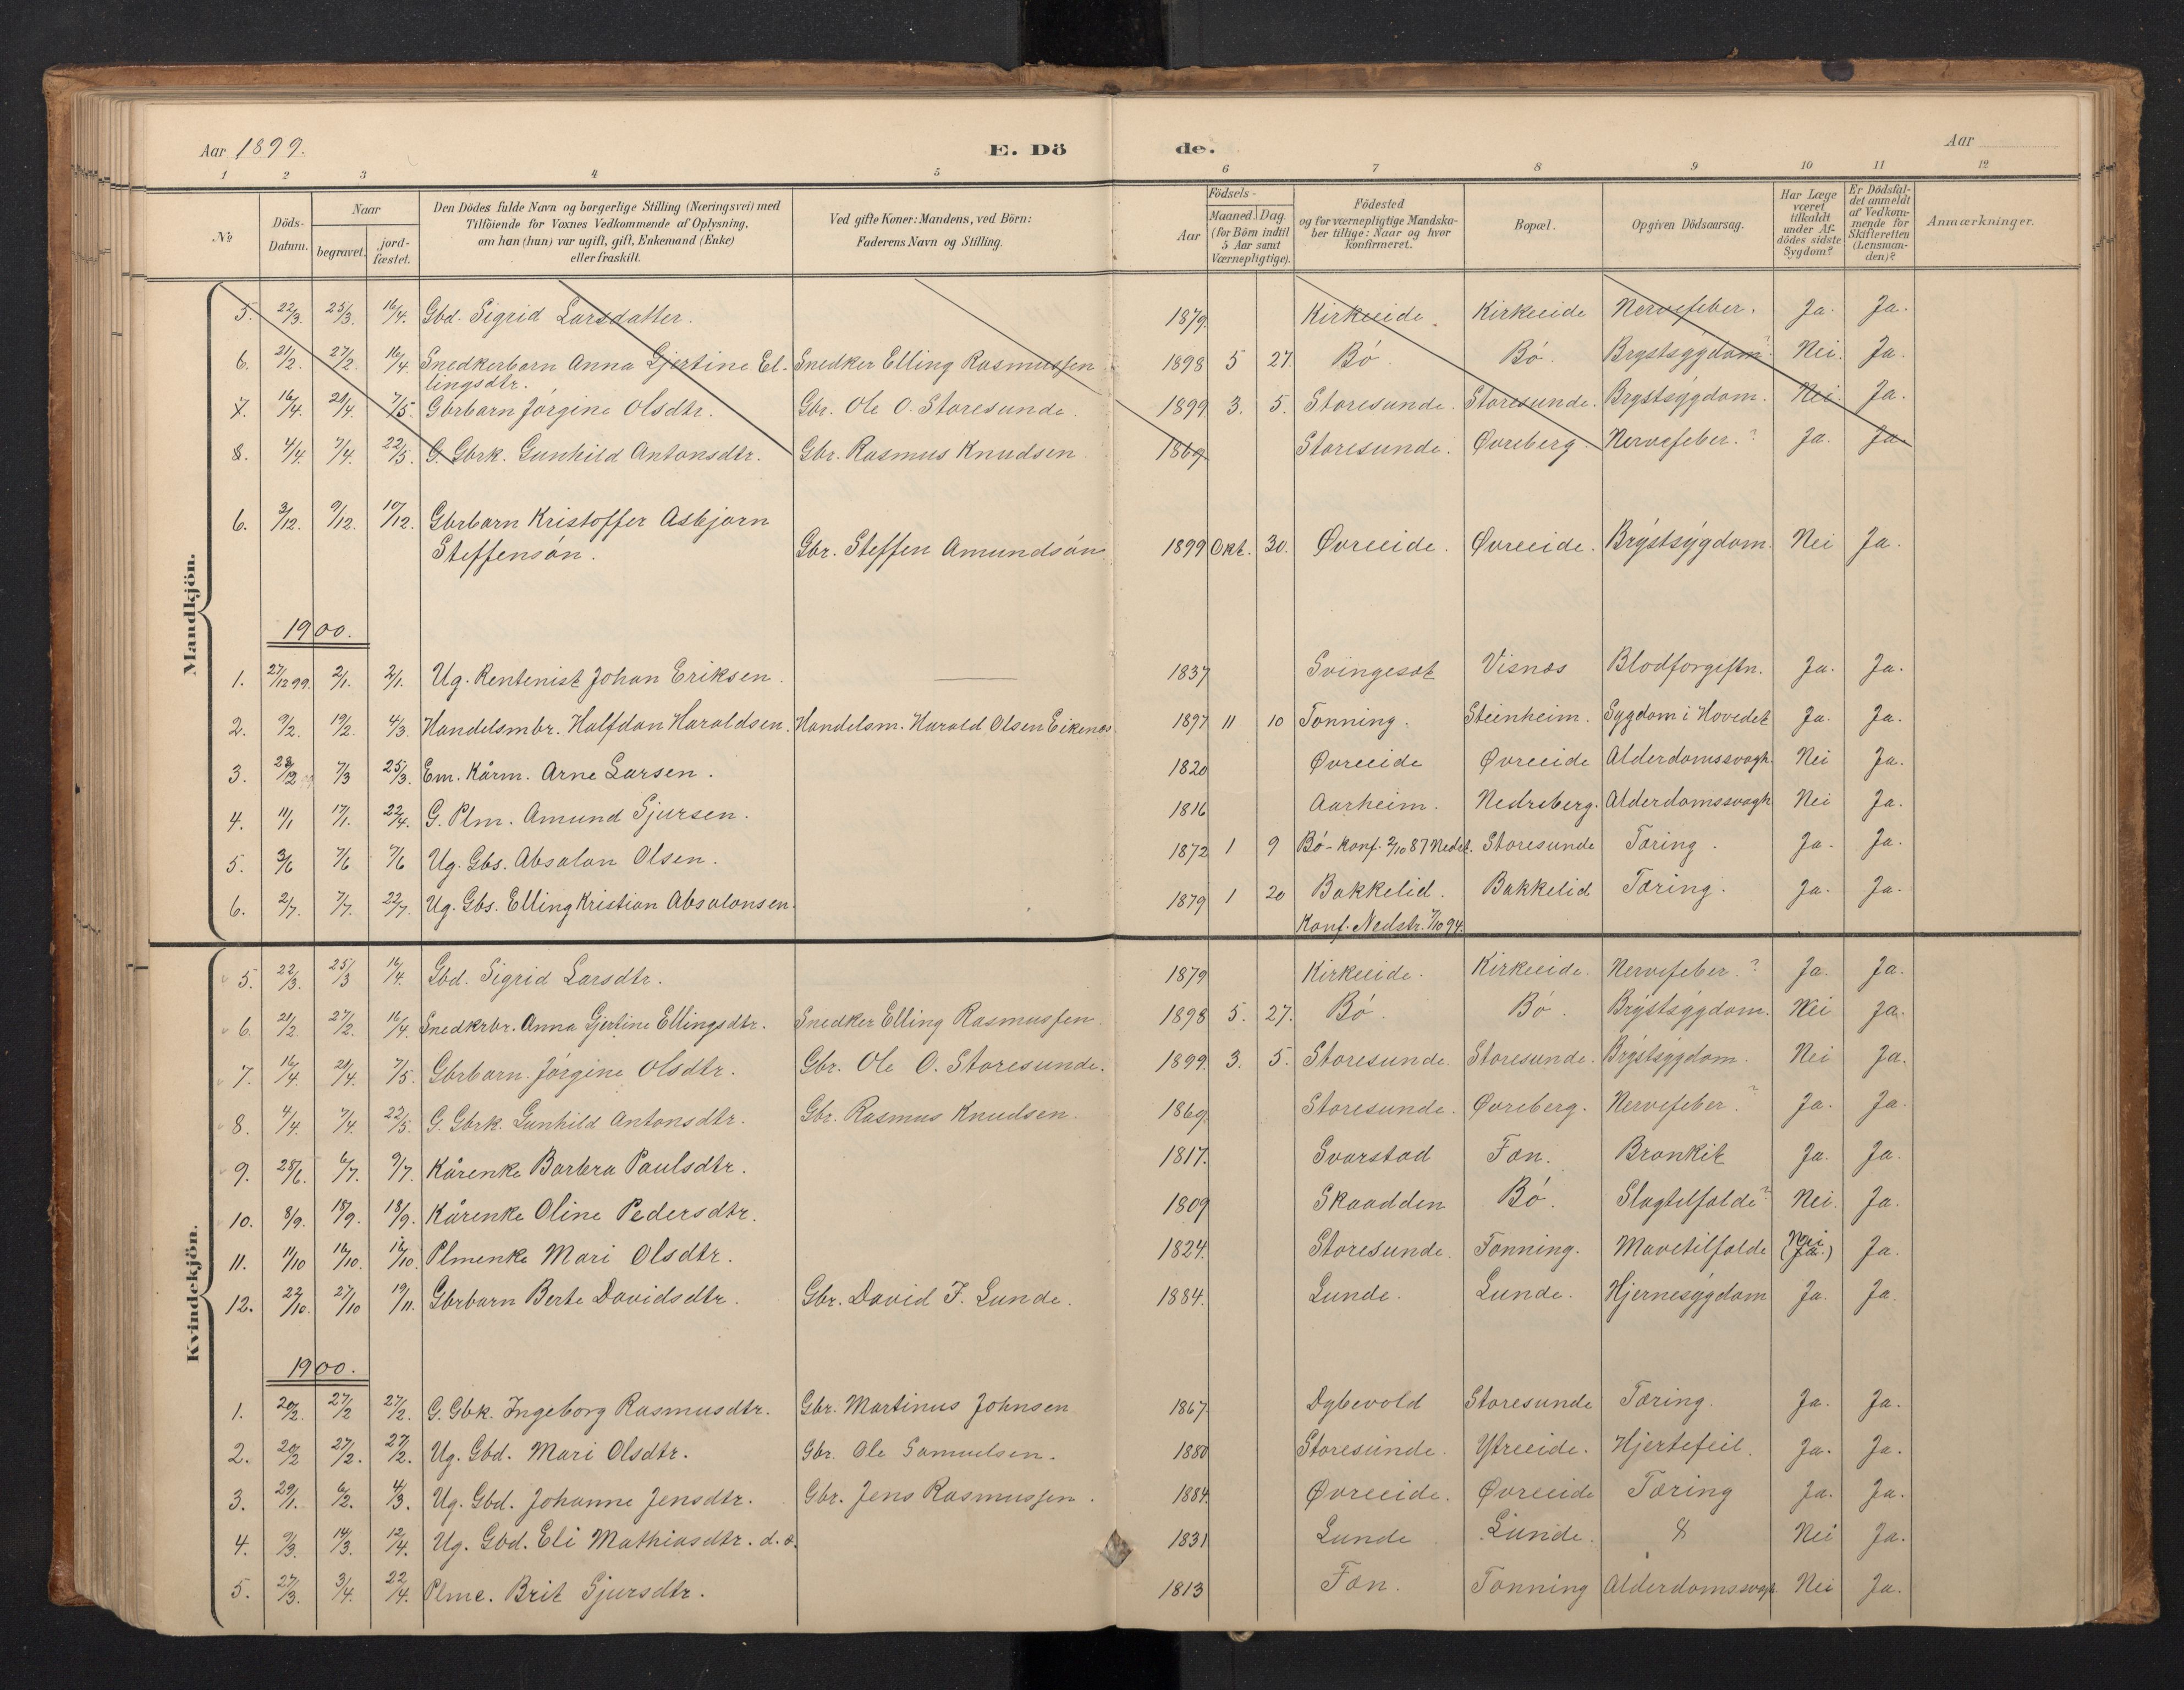 Aar 1899. E. Dö de. Aar
1 2 3 4 5 6 7 8 9 10 11 12
No
Döds-Datum.
Naar
begravet.
jord-fæstet.
Den Dödes fulde Navn og borgerlige Stilling (Næringsvei) med
Tilföiende for Voxnes Vedkommende af Oplysning,
om han (hun) var ugift, gift, Enkemand (Enke)
eller fraskilt.
Ved gifte Koner: Mandens, ved Börn:
Faderens Navn og Stilling.
Födsels-
Aar
Maaned. Dag.
(for Börn indtil
5 Aar samt
Værnepligtige).
Födested
og for værnepligtige Mandska-
ber tillige: Naar og hvor
Konfirmeret.
Bopæl.
Opgiven Dödsaarsag.
Har Læge
været
tilkaldt
under Af-
dödes sidste
Sygdom?
Er Dödsfal-
det anmeldt
af Vedkom-
mende for
Skifteretten
(Lensman-
den)?
Anmærkninger.
Mandkjön.
5. 22/3. 25/3. 16/4. Gbd. Sigrid Larsdatter. 1879. Kirkeeide. Kirkeeide Nervefeber. Ja. Ja.
6. 21/2. 27/2. 16/4. Snedkerbarn Anna Gjertine El- Snedker Elling Rasmussen 1898 5 27. Bö. Bö. Brystsygdom? Nei. Ja.
lingsdtr.
7. 16/4. 21/4. 7/5. Gbrbarn Jörgine Olsdtr. Gbr. Ole O. Storesunde. 1899 3. 5. Storesunde. Storesunde. Brystsygdom. Nei. Ja.
8. 4/4. 7/4. 22/5. G. Gbrk. Gunhild Antonsdtr. Gbr. Rasmus Knudsen 1869 Storesunde. Øvreberg. Nervefeber.? Ja. Ja.
6. 3/12. 9/12. 10/12. Gbrbarn Kristoffer Asbjörn
Steffensön. Gbr. Steffen Amundsön. 1899 Okt. 30. Øvreeide. Øvreeide. Brystsygdom. Nei Ja.
1900.
1. 27/12 99. 2/1. 2/1. Ug. Rentenist Johan Eriksen. 1837 Svingeset Visnes Blodforgiftn. Ja. Ja.
2. 9/2. 19/2. 4/3. Handelsmbr. Halfdan Haraldsen. Handelsm. Harald Olsen Eikenes 1897 11 10 Tonning. Steinheim. Sygdom i Hovedet Ja. Ja.
3. 28/12 7/3 25/3. Em. Kårm. Arne Larsen. 1820 Øvreeide Øvreeide Alderdomssvagh. Nei Ja.
4. 11/1 17/1. 22/4. G. Plm. Amund Sjursen. 1816 Aarheim. Nedreberg. Alderdomssvagh Nei Ja.
5. 3/6 7/6 7/6 Ug. Gbs. Absalon Olsen. 1872 1 9 Bö - Konf. 2/10 87 Nedst. Storesunde Tæring. Ja. Ja.
6. 2/7. 7/7. 22/7. Ug. Gbs. Elling Kristian Absalonsen. 1879 1 20 Bakkelid. Bakkelid Tæring. Ja. Ja.
Konf. Nedstr. 7/10 94.
Kvindekjön.
5. 22/3. 25/3 16/4. Gbd. Sigrid Larsdtr. 1879 Kirkeeide. Kirkeeide. Nervefeber.? Ja. Ja.
6. 21/2 27/2. 16/4. Snedkrbr. Anna Gjertine Ellingsdtr. Snedker Elling Rasmussen. 1898 5. 27. Bö. Bö. Brystsygdom. Nei Ja.
7. 16/4. 21/4. 7/5. Gbrbarn. Jörgine Olsdtr. Gbr. Ole O. Storesunde. 1899. 3. 5. Storesunde. Storesunde. Brystsygdom. Nei Ja.
8. 4/4. 7/4. 22/5. G. Gbrk. Gunhild Antonsdtr. Gbr. Rasmus Knudsen. 1869. Storesunde. Øvreberg. Nervefeber.? Ja. Ja.
9. 28/6. 6/7. 9/7. Kårenke Barbra Paulsdtr. 1817. Svarstad Fæn. Bronkit Ja. Ja.
10. 8/9. 18/9. 18/9. Kårenke Oline Pedersdtr. 1809 Skaadden Bö. Slagtilfælde? Nei. Ja.
11. 11/10 16/10. 16/10. Plmenke Mari Olsdtr. 1824. Storesunde. Tonning. Mavetilfælde Nei (Ja.) Ja.
12. 22/10. 27/10 19/11. Gbrbarn Berte Davidsdtr. Gbr. David J. Lunde. 1884. Lunde. Lunde. Hjernesygdom Ja. Ja.
1900.
1. 20/2. 27/2 27/2. G. Gbk. Ingeborg Rasmusdtr. Gbr. Martinus Johnsen 1867. Dybevold Storesunde Tæring. Ja. Ja.
2. 20/2 27/2. 27/2. Ug. Gbd. Mari Olsdtr. Gbr. Ole Samuelsen. 1880 Storesunde. Ytreeide. Hjertefeil. Ja. Ja.
3. 29/1. 6/2. 4/3. Ug. Gbd. Johanne Jensdtr. Gbr. Jens Rasmussen. 1884. Øvreeide. Øvreeide Tæring Ja. Ja.
4. 9/3. 14/3. 12/4. Ug. Gbd. Eli Mathiasdtr. d. æ. 1831 Lunde Lunde. Nei Ja.
5. 27/3. 3/4. 22/4. Plme. Brit Sjursdtr. 1813 Fæn. Tonning Alderdomssvagh. Nei Ja.